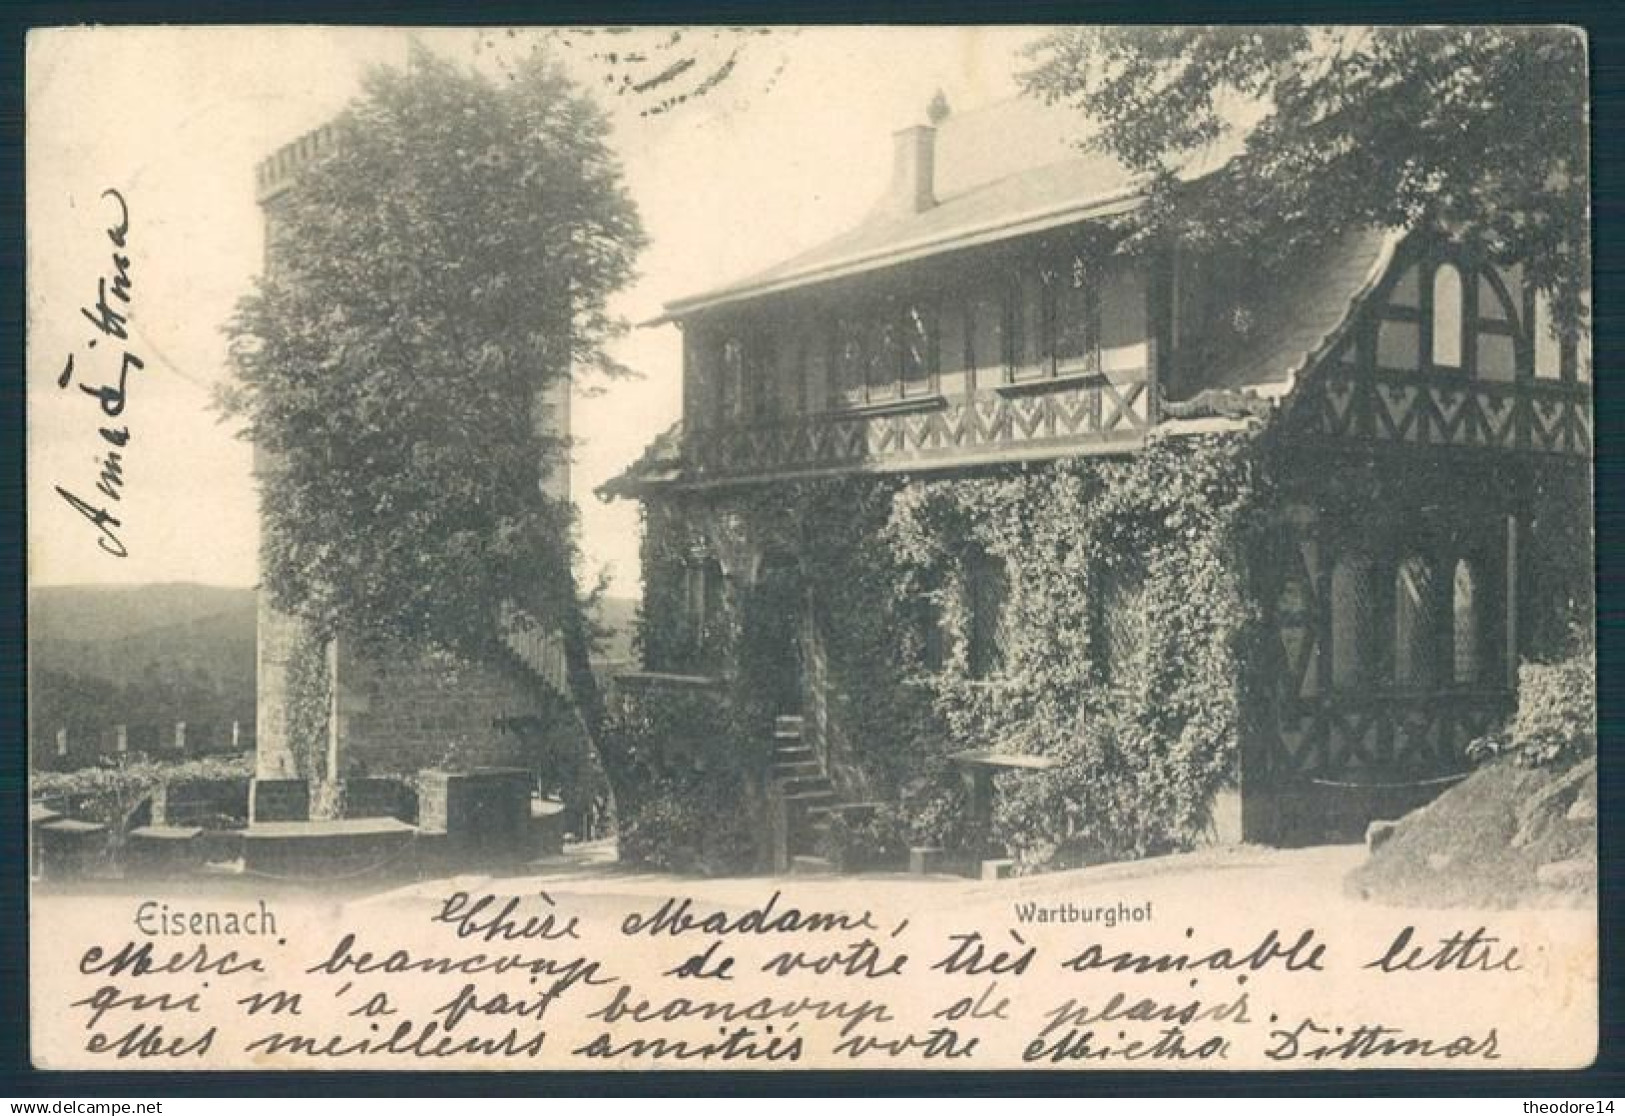 Eisenach
Wartburghof
Chère Madame,
Merci beaucoup de votre très amiable lettre
qui m'a fait beaucoup de plaisir.
Mes meilleurs amitiés votre Mietha Dittmar
Anna
theodore14